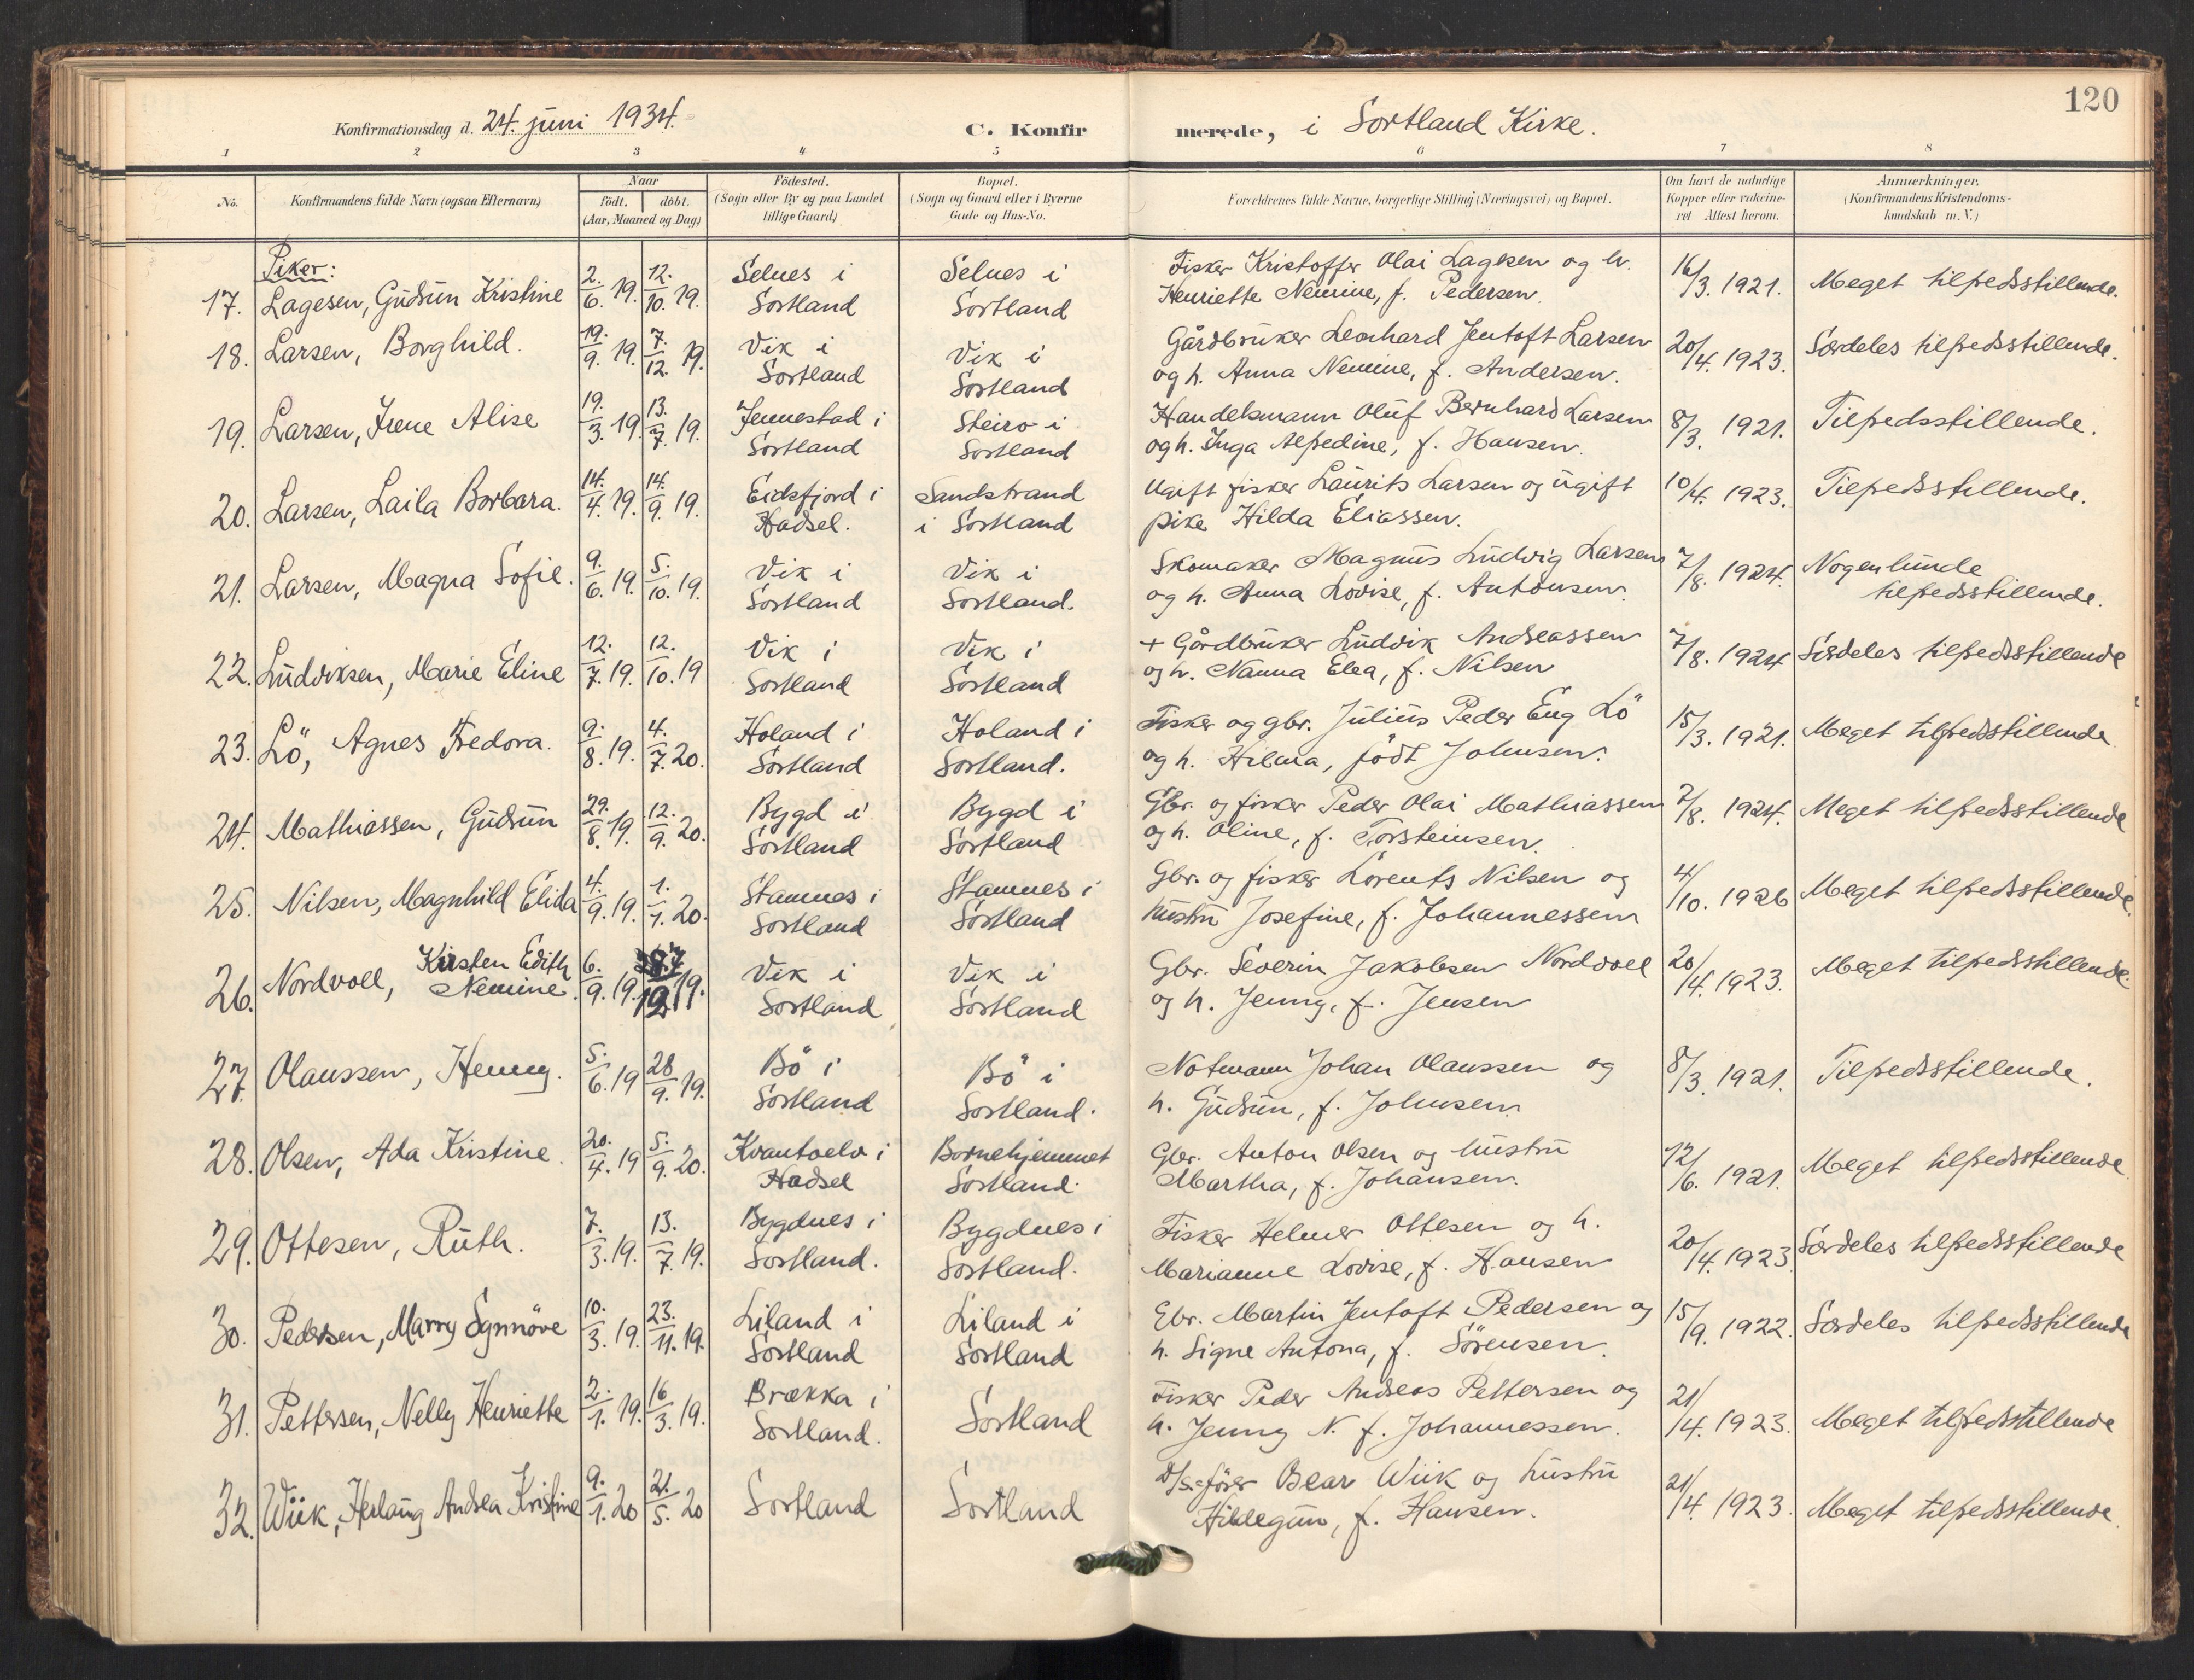 120
Konfirmationsdag d. 24. juni 1934. C. Konfirmerede, i Sortland Kirke.
1 2 3 4 5 6 7 8
No. Konfirmandens fulde Navn (ogsaa Efternavn) Naar födt. döbt. (Aar, Maaned og Dag) Födested. (Sogn eller By og paa Landet tillige Gaard) Bopæl. (Sogn og Gaard eller i Byerne Gade og Hus-No. Forældrenes fulde Navne, borgerlige Stilling (Næringsvei) og Bopæl. Om havt de naturlige Kopper eller vakcineret Attest herom. Anmærkninger. (Konfirmandens Kristendomskundskab m. V.)
Piker:
17. Lagesen, Gudrun Kristine 2./6. 19. 12./10. 19. Selnes i Sortland Selnes i Sortland Fisker Kristoffer Olai Lagesen og h. Henriette Nemine, f. Pedersen. 16/3. 1921. Meget tilfredsstillende.
18. Larsen, Borghild. 19./9. 19. 7./12. 19. Vik i Sortland Vik i Sortland Gårdbruker Leonhard Jentoft Larsen og h. Anna Nemine, f. Andersen. 20/4. 1923. Særdeles tilfredsstillende.
19. Larsen, Irene Alise 19./3. 19. 13./7. 19. Jennestad i Sortland Steiro i Sortland Handelsmann Oluf Bernhard Larsen og h. Inga Alfedine, f. Hansen. 8/3. 1921. Tilfredsstillende.
20. Larsen, Laila Borbara. 14./4. 19. 14./9. 19. Eidsfjord i Hadsel. Sandstrand i Sortland Ugift fisker Laurits Larsen og ugift pike Hilda Eliassen. 10/4. 1923. Tilfredsstillende.
21. Larsen, Magna Sofie. 9./6. 19. 5./10. 19. Vik i Sortland Vik i Sortland. Skomaker Magnus Ludvig Larsen og h. Anna Lovise, f. Antonsen. 7/8. 1924. Nogenlunde tilfredsstillende.
22. Ludviksen, Marie Eline 12./7. 19. 12./10. 19 Vik i Sortland Vik i Sortland + Gårdbruker Ludvik Andreassen og h. Nanna Elea, f. Nilsen 7/8. 1924 Særdeles tilfredsstillende
23. Lö, Agnes Fredora. 9./8. 19. 4./7. 20. Holand i Sortland Holand i Sortland. Fisker og gbr. Julius Peder Eng Lö og h. Hilma, födt Johnsen. 15/3. 1921. Meget tilfredsstillende
24. Mathiassen, Gudrun 29./8. 19. 12./9. 20. Bygd i Sortland Bygd i Sortland Gbr. og fisker Peder Olai Mathiassen og h. Oline, f. Torsteinsen. 7/8. 1924. Meget tilfredsstillende
25. Nilsen, Magnhild Elida 4./9. 19. 1./1. 20. Stamnes i Sortland Stamnes i Sortland Gbr. og fisker Lorents Nilsen og hustru Josefine, f. Johannessen 4/10. 1926 Meget tilfredsstillende.
26. Nordvoll, Kirsten Edith Nemine. 6./9. 19. 12 19. Vik i Sortland Vik i Sortland Gbr. Severin Jakobsen Nordvoll og h. Jenny, f. Jensen 20/4. 1923. Meget tilfredsstillende.
27. Olaussen, Henny. 5./6. 19 28/9. 19. Bö i Sortland Bö i Sortland. Notmann Johan Olaussen og h. Gudrun, f. Johnsen 8/3. 1921. Tilfredsstillende.
28. Olsen, Ada Kristine. 20./4. 19 5./9. 20. Kvantoelv i Hadsel Barnehjemmet Sortland. Gbr. Anton Olsen og hustru Martha, f. Johansen. 12/6. 1921. Meget tilfredsstillende
29. Ottesen, Ruth. 7./3. 19. 13./7. 19. Bygdnes i Sortland. Bygdnes i Sortland. Fisker Helmer Ottesen og h. Marianne Lovise, f. Hansen 20/4. 1923. Særdeles tilfredsstillende
30. Pedersen, Marry Synnöve 10./3. 19. 23./11. 19. Liland i Sortland Liland i Sortland Gbr. Martin Jentoft Pedersen og h. Signe Antona, f. Sörensen. 15/9. 1922. Særdeles tilfredsstillende
31. Pettersen, Nelly Henriette 2./1. 19. 16/3. 19. Brækka i Sortland. Sortland Fisker Peder Andreas Pettersen og h. Jenny N. f. Johannessen. 21/4. 1923. Meget tilfredsstillende
32. Wiik, Herlaug Andrea Kristine 9./1. 20 21./5. 20 Sortland Sortland D/s-förer Bear Wiik og hustru Hildegun, f. Hansen. 21/4. 1923. Meget tilfredsstillende.